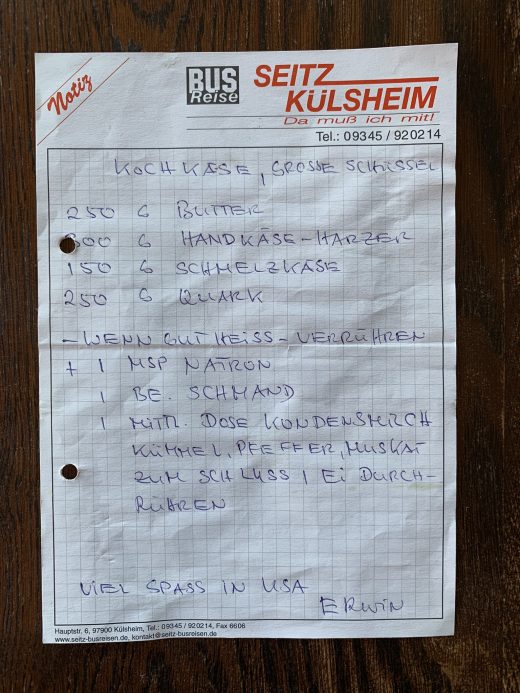 Notiz
BUS
Reise
SEITZ
KÜLSHEIM
Da muß ich mit!
Tel.: 09345 / 920214
KOCHKÄSE, GROSSE SCHÜSSEL
250 G BUTTER
300 G HANDKÄSE-HARZER
150 G SCHMELZKÄSE
250 G QUARK
- WENN GUT HEISS - VERRÜHREN
+ 1 MSP NATRON
1 BE. SCHMAND
1 MITTL. DOSE KONDENSMILCH
KÜMMEL, PFEFFER, MUSKAT
ZUM SCHLUSS 1 EI DURCH-
RÜHREN
VIEL SPASS IN USA
ERWIN
Hauptstr. 6, 97900 Külsheim, Tel.: 09345 / 920214, Fax 6606
www.seitz-busreisen.de, kontakt@seitz-busreisen.de